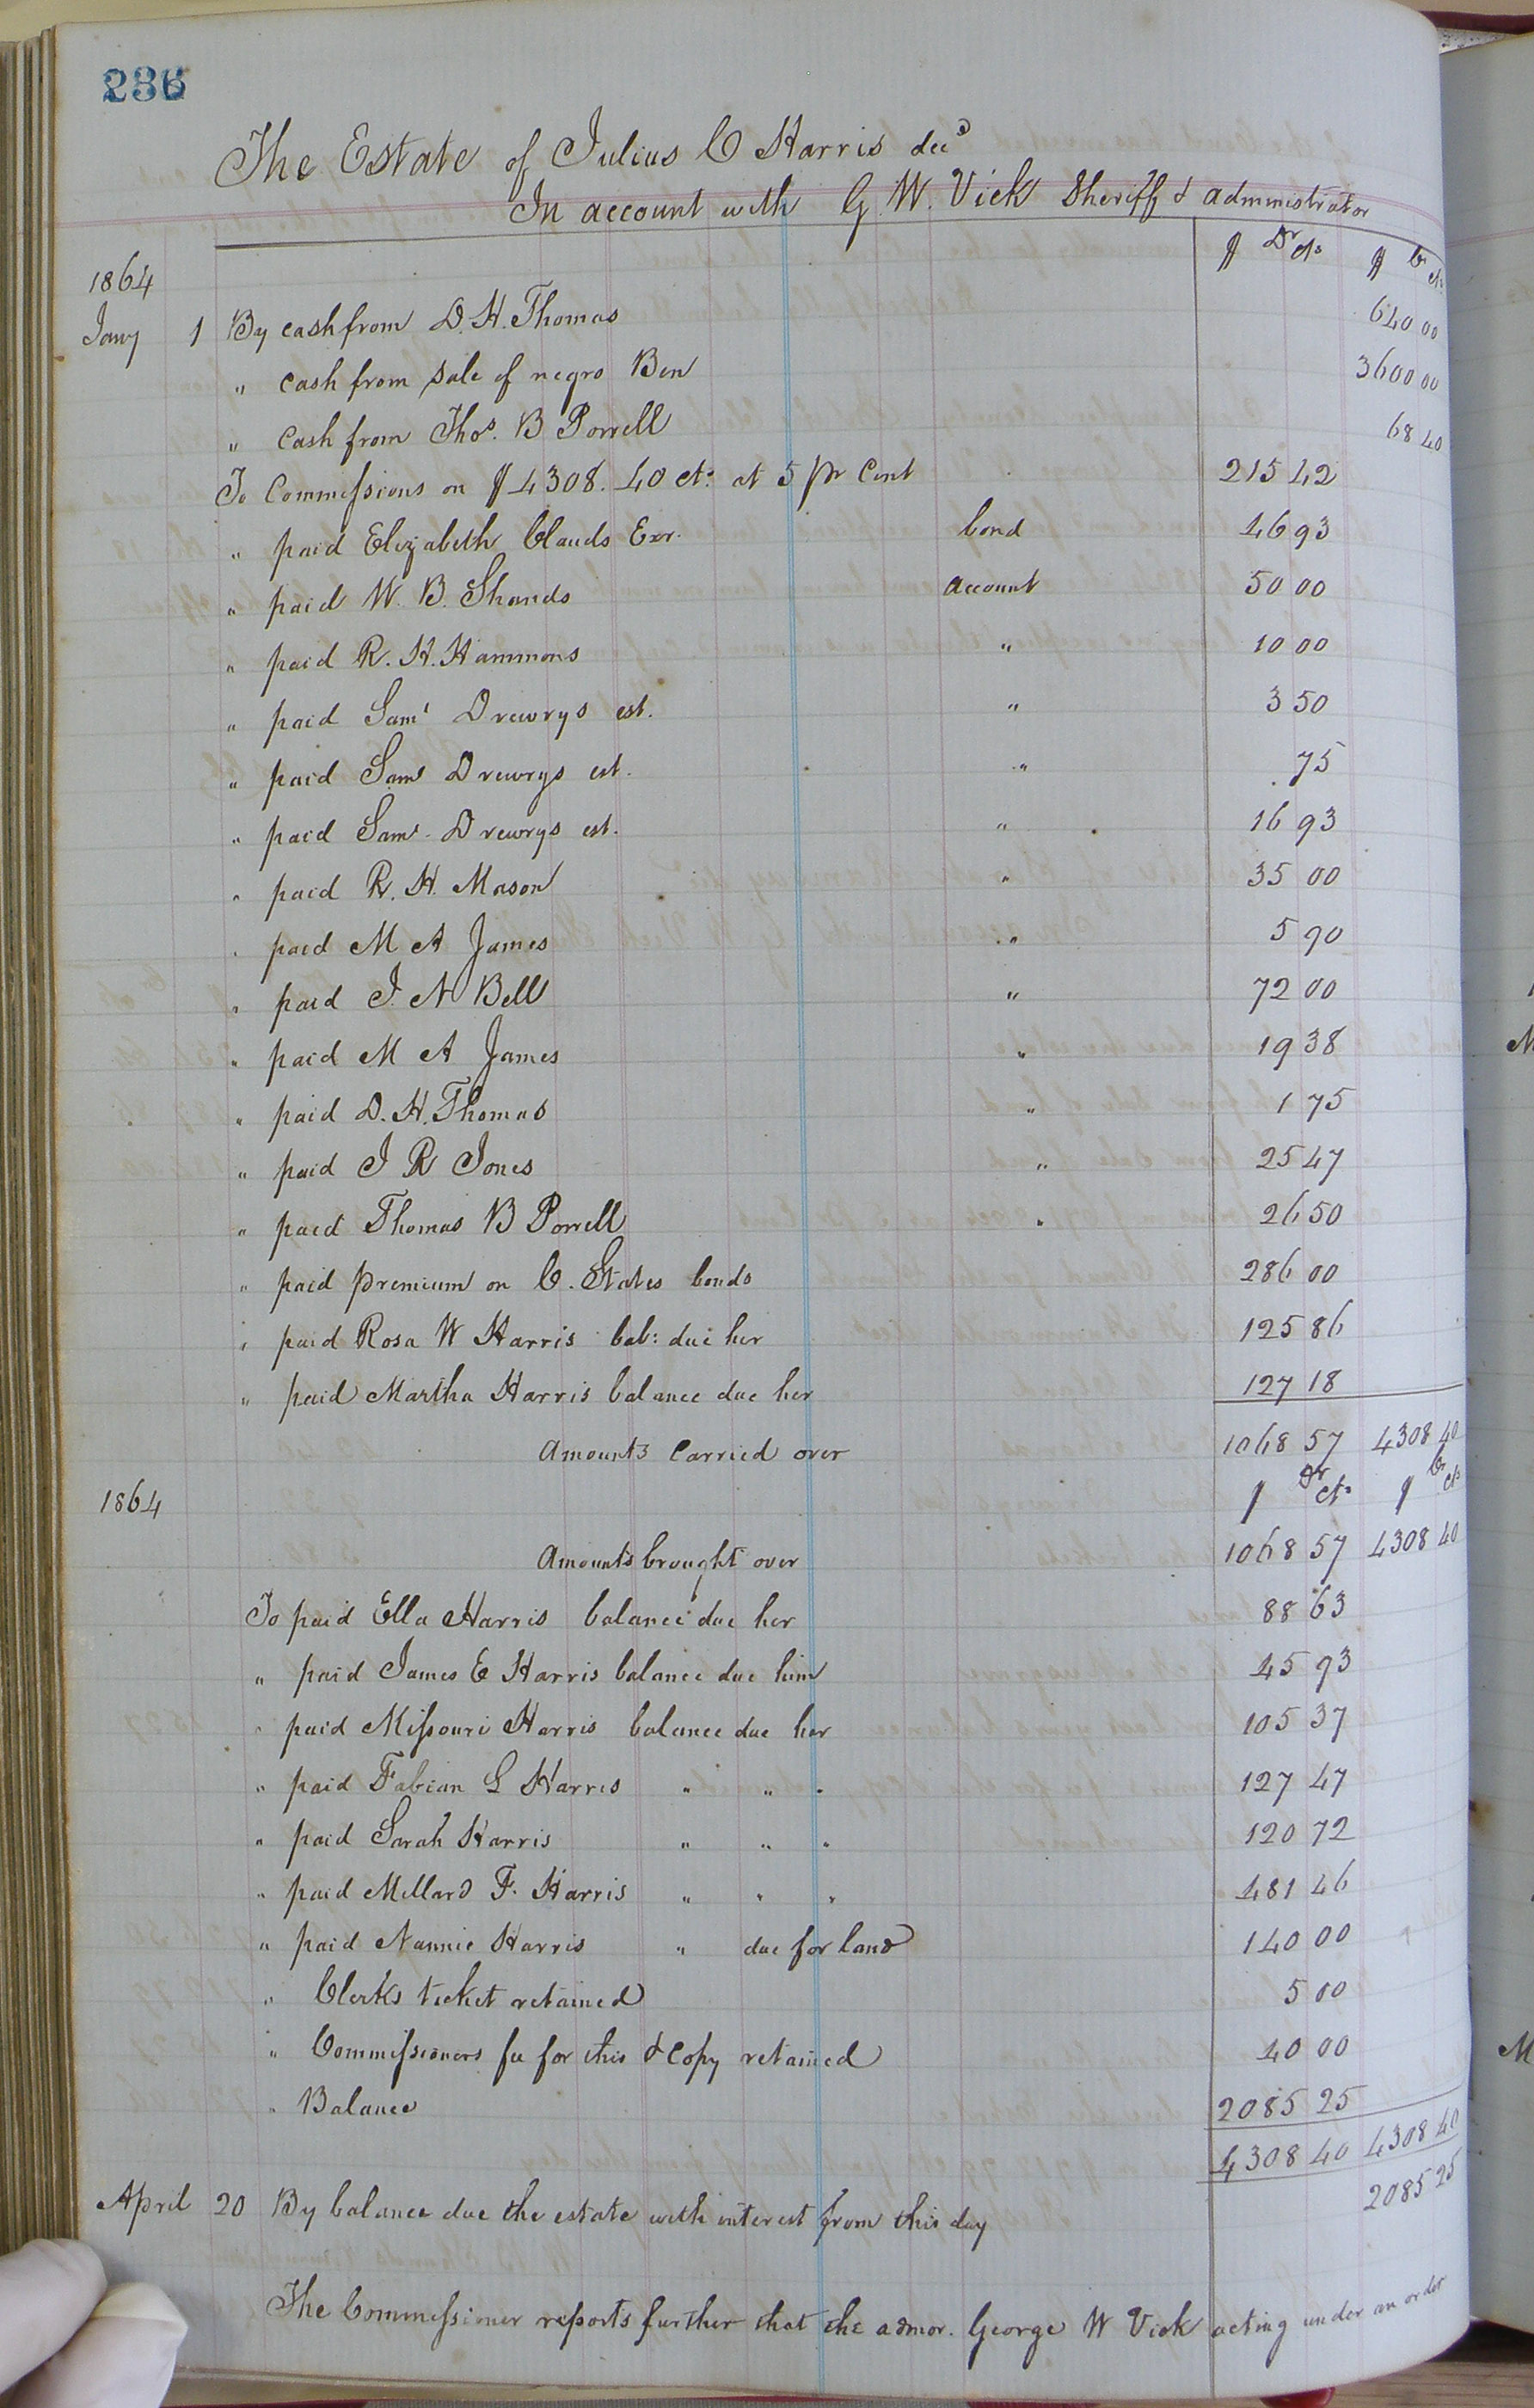 236
The Estate of Julius C Harris decd
In account with G. W. Vick Sheriff & administrator
$ Dr cts $ Cr cts
1864
Jany 1 By cash from D. H. Thomas 640 00
" cash from sale of negro Ben 3600 00
" cash from Thos. B Porrell 68 40
To Commissions on $4308.40 cts at 5 pr Cent 215 42
" paid Elizabeth Clauds Exr. bond 46 93
" paid W. B. Shands account 50 00
" paid R. H. Hammons " 10 00
" paid Saml Drewrys est. " 3 50
" paid Saml Drewrys est. " 75
" paid Saml Drewrys est. " 16 93
" paid R. H. Mason " 35 00
" paid M A James " 5 90
" paid J. N Bell " 72 00
" paid M A James " 19 38
" paid D. H. Thomas " 1 75
" paid J R Jones " 25 47
" paid Thomas B Porrell " 26 50
" paid premium on C. States bonds 286 00
" paid Rosa W Harris bal: due her 125 86
" paid Martha Harris balance due her 127 18
Amounts Carried over 1068 57 4308 40
1864 $ Dr cts $ Cr cts
Amounts brought over 1068 57 4308 40
To paid Ella Harris balance due her 88 63
" paid James E Harris balance due him 45 93
" paid Missouri Harris balance due her 105 37
" paid Fabian L Harris " " " 127 47
" paid Sarah Harris " " " 120 72
" paid Millard F. Harris " " " 481 46
" paid Nannie Harris " due for land 140 00
" Clerks ticket retained 5 00
" Commissioners fee for this & Copy retained 40 00
" Balance 2085 25
4308 40 4308 40
April 20 By balance due the estate with interest from this day 2085 25
The Commissioner reports further that the admor. George W Vick acting under an order